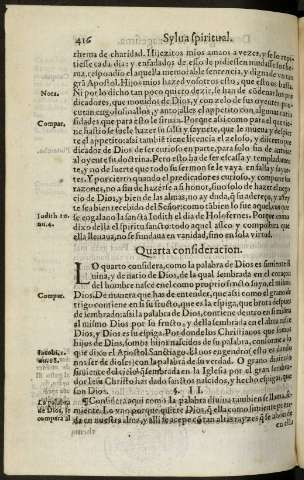 416 Sylua spiritual.
thema de charidad. Hijezitos mios amaos a vezes, y se lo repi-
tiesse cada dia: y enfadados de esso le pidiessen mudasse
ma, respondio el aquella memorable sentencia, y digna de tan
grã Apostol. Hijos mios hazed vosotros esto, que esto basta.
Nota.
Ni por lo dicho tan poco quiero dezir, se han de cõdenar los pre
dicadores, que mouidos de Dios, y con zelo de sus oyentes
cutan engolosinallos, y auiuarles el appetito con algunas
sidades que para ello le sirua. Porque assi como para el que
Compar.
ne hastio se suele hazer su salsa y saynete, que le mueua y despier
te el appetito: assi tambiẽ tiene licencia el zeloso, y discreto pre
dicador de Dios de ser curioso en parte, para solo fin de
al oyente su doctrina. Pero esto ha de ser escassa y templadamen
te, y no de suerte que todo su sermon se le vaya en salsa y sayne-
tes. Y por cierto quando el predicador es curioso, y compone sus
razones, no a fin de hazerse assi honor, sino solo de hazer el nego
cio de Dios, y bien de las almas, no ay duda, q̃ su aderço, y afey
te sea bien recebido del Señor: como tãbien lo fue aquel, con
Iudith 10.
nu. 4.
se engalano la sancta Iudith el dia de Holofernes. Porque como
dixo della el spiritu sancto: todo aquel asseo y compostura que
ella lleuaua, no se fundaua en vanidad, sino en sola virtud.
Quarta consideracion.
LO quarto considera, como la palabra de Dios es simiente di
uina, y de nario de Dios, de la qual sembrada en el coraçon
del hombre nasce en el como proprio fructo suyo, el mismo
Compar.
Dios. De manera que has de entender, que assi como el grano de
trigo contiene en si su fructo, que es la espiga, que brota despues
de sembrado: assi la palabra de Dios, contiene dentro en si mismo
al mismo Dios por su fructo, y della sembrada en el alma nasce
Dios, y Dios es su espiga. Por donde los Christianos que somos
hijos de Dios, somos hijos nascidos de su palabra, conforme a lo
Iacobi, 1.
que dixo el Apostol Sanctiago. El nos engendro (esto es) dando
nos ser de dioses: con la palabra de su verdad. O grano diuino,
simiente del cielo, q̃ sembrada en la Iglesia por el gran sembra-
dor Iesu Christo has dado sanctos nascidos, y hecho espigas, que
son Dios.
§. II.
La palabra
de Dios, se
compara al
¶ Considera aqui como la palabra diuina tambien se llama si-
miente. Lo vno porque quiere Dios, q̃ ella como simiente se
da en nuestra alma, y alli se acepte cõ tan altas rayzes, q̃ se
en ella